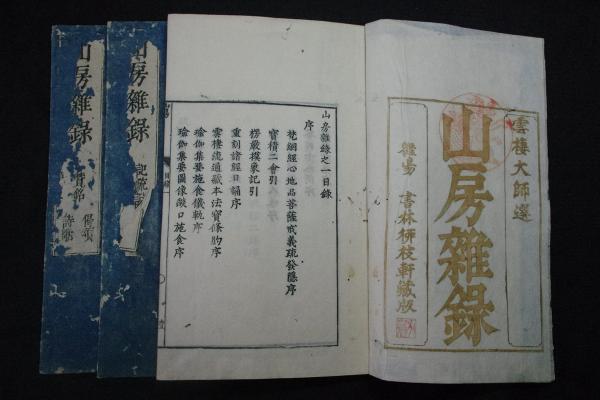 雲棲大師選
山房雜錄
書林柳枝軒藏版
山房雜錄之一目錄
序
梵網經心地品菩薩戒義疏發隱序
寶積二會引
楞嚴摸象記引
重刻諸經日誦序
雲棲流通藏本法寶條約序
瑜伽集要施食儀軌序
瑜伽集要圖像燄口施食序
山房雜錄
山房雜錄